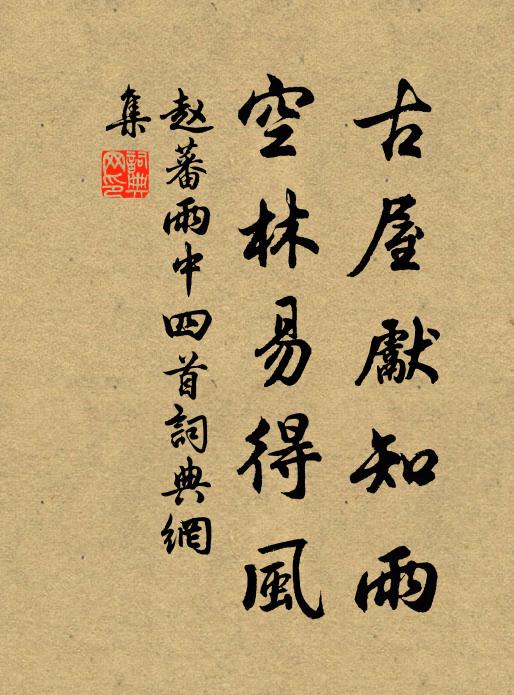 古屋獻知雨
空林易得風
赵蕃雨中四首詞典網
集
詞典
网印